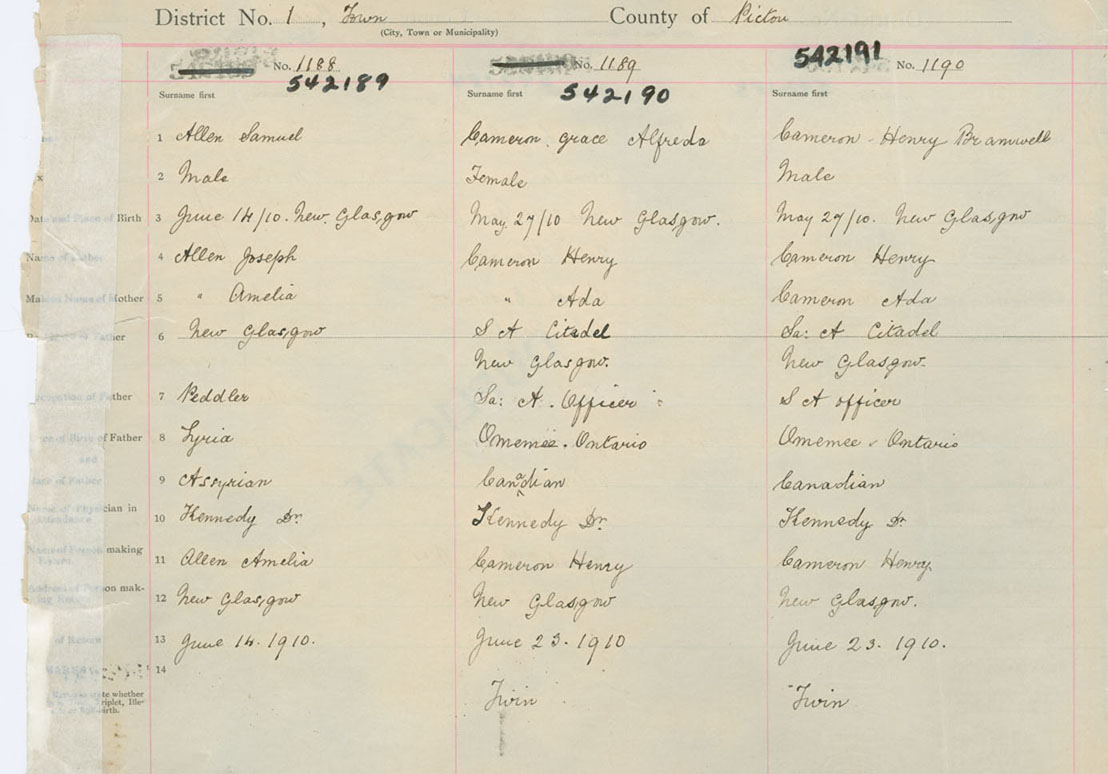 District No. 1, Town County of Pictou
(City, Town or Municipality)
No. 1188 No. 1189 542191 No. 1190
542189 542190
Surname first Surname first Surname first
1 Allen Samuel Cameron Grace Alfreda Cameron - Henry Bramwell
2 Male Female Male
Date and Place of Birth 3 June 14/10. New Glasgow May 27/10 New Glasgow. May 27/10. New Glasgow
Name of Father 4 Allen Joseph Cameron Henry Cameron Henry
Maiden Name of Mother 5 " Amelia " Ada Cameron Ada
Father 6 New Glasgow S A Citadel Sa: A Citadel
New Glasgow. New Glasgow.
Occupation of Father 7 Peddler Sa: A. Officer S A officer
of Birth of Father 8 Syria Omemee. Ontario Omemee - Ontario
and
of Father 9 Assyrian Canadian Canadian
Name of Physician in
attendance 10 Kennedy Dr. Kennedy Dr. Kennedy Dr.
Name of Person making
11 Allen Amelia Cameron Henry Cameron Henry.
Address of Person mak-
ing 12 New Glasgow New Glasgow New Glasgow.
of Return 13 June 14. 1910. June 23. 1910 June 23. 1910.
14
state whether
Triplet, Ille-
birth.
Twin Twin